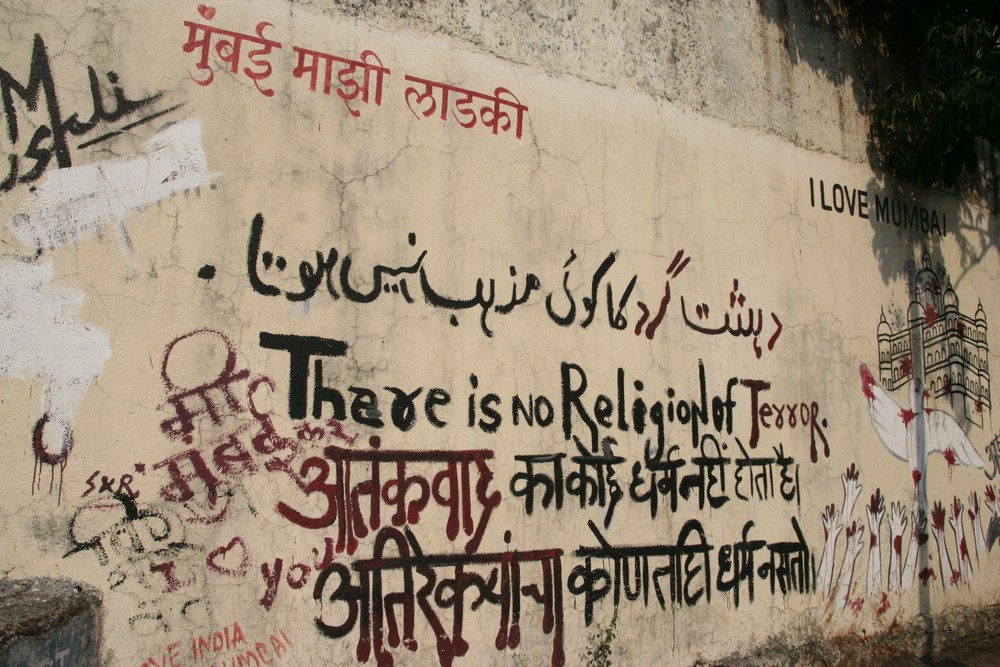 मुंबई माझी लाडकी
I LOVE MUMBAI
دہشت گرد کا کوئی مذہب نہیں ہوتا .
There is No Religion of Terror.
आतंकवाद का कोई धर्म नहीं होता है।
अतिरेक्यांचा कोणताही धर्म नसतो।
मी
मुंबई
SKR
I
you
INDIA
MUMBAI